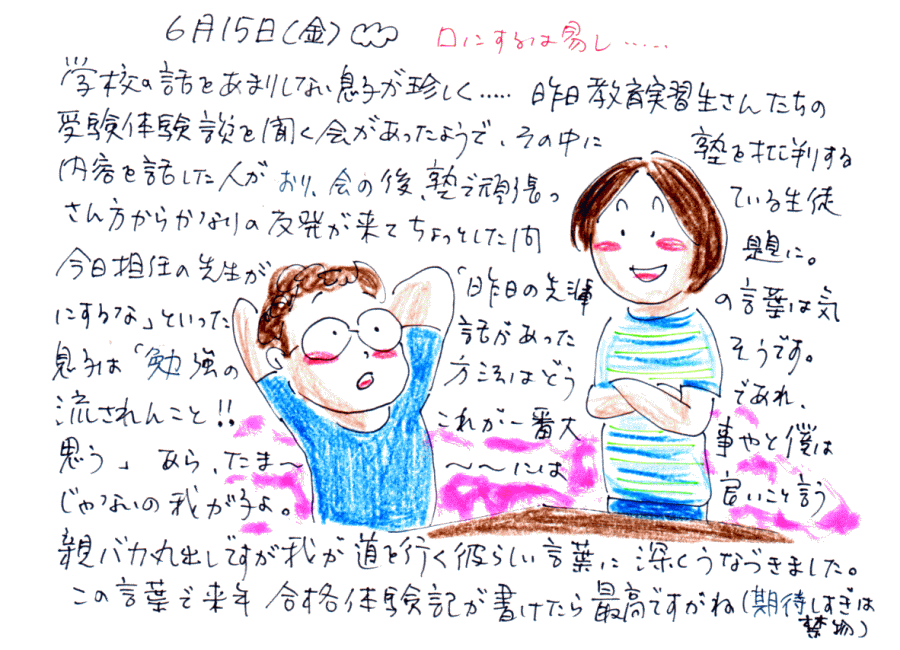 6月15日(金)
口にするは易し……
学校の話をあまりしない息子が珍しく…… 昨日教育実習生さんたちの
受験体験談を聞く会があったようで、その中に 塾を批判する
内容を話した人が おり、会の後、塾で頑張っ ている生徒
さん方からかなりの反発が来てちょっとした問 題に。
今日担任の先生が 「昨日の先輩 の言葉は気
にするな」といった 話があった そうです。
息子は「勉強の 方法はどう であれ、
流されんこと!! これが一番大 事やと僕は
思う」 あら、たま〜 〜〜には 良いこと言う
じゃないの我が子よ。
親バカ丸出しですが我が道を行く彼らしい言葉に深くうなづきました。
この言葉で来年 合格体験記が書けたら最高ですがね(期待しすぎは
禁物)